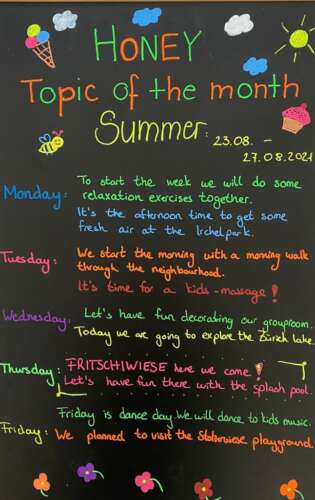 HONEY
Topic of the month
Summer: 23.08. –
27.08.2021
Monday: To start the week we will do some
relaxation exercises together.
It's the afternoon time to get some
fresh air at the Irchelpark.
Tuesday: We start the morning with a morning walk
through the neighbourhood.
It's time for a kids-massage!
Wednesday: Let's have fun decorating our grouproom.
Today we are going to explore the Zürich lake.
Thursday: FRITSCHIWIESE here we come!
Let's have fun there with the splash pool.
Friday is dance day. We will dance to kids music.
Friday: We planned to visit the playground.